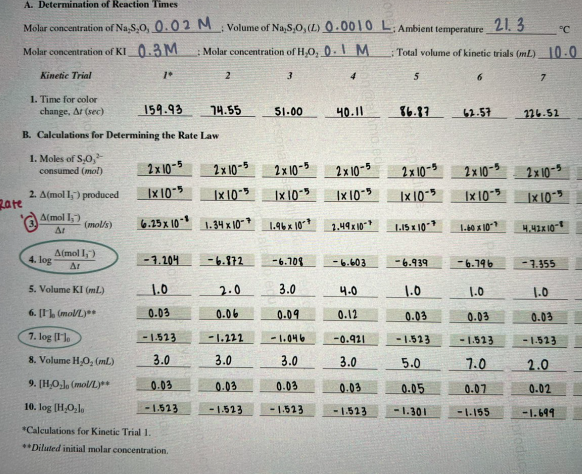 A. Determination of Reaction Times
Molar concentration of Na₂S₂O₃ 0.02 M ; Volume of Na₂S₂O₃ (L) 0.0010 L ; Ambient temperature 21.3 °C
Molar concentration of KI 0.3M ; Molar concentration of H₂O₂ 0.1 M ; Total volume of kinetic trials (mL) 10.0
Kinetic Trial 1* 2 3 4 5 6 7
1. Time for color
change, Δt (sec) 159.93 74.55 51.00 40.11 86.87 62.57 226.52
B. Calculations for Determining the Rate Law
1. Moles of S₂O₃²⁻
consumed (mol) 2x10⁻⁵ 2x10⁻⁵ 2x10⁻⁵ 2x10⁻⁵ 2x10⁻⁵ 2x10⁻⁵ 2x10⁻⁵
2. Δ(mol I₃⁻) produced 1x10⁻⁵ 1x10⁻⁵ 1x10⁻⁵ 1x10⁻⁵ 1x10⁻⁵ 1x10⁻⁵ 1x10⁻⁵
Rate
3. Δ(mol I₃⁻)/Δt (mol/s) 6.25x10⁻⁸ 1.34x10⁻⁷ 1.96x10⁻⁷ 2.49x10⁻⁷ 1.15x10⁻⁷ 1.60x10⁻⁷ 4.42x10⁻⁸
4. log Δ(mol I₃⁻)/Δt -7.204 -6.872 -6.708 -6.603 -6.939 -6.796 -7.355
5. Volume KI (mL) 1.0 2.0 3.0 4.0 1.0 1.0 1.0
6. [I⁻]₀ (mol/L)** 0.03 0.06 0.09 0.12 0.03 0.03 0.03
7. log [I⁻]₀ -1.523 -1.222 -1.046 -0.921 -1.523 -1.523 -1.523
8. Volume H₂O₂ (mL) 3.0 3.0 3.0 3.0 5.0 7.0 2.0
9. [H₂O₂]₀ (mol/L)** 0.03 0.03 0.03 0.03 0.05 0.07 0.02
10. log [H₂O₂]₀ -1.523 -1.523 -1.523 -1.523 -1.301 -1.155 -1.699
*Calculations for Kinetic Trial 1.
**Diluted initial molar concentration.